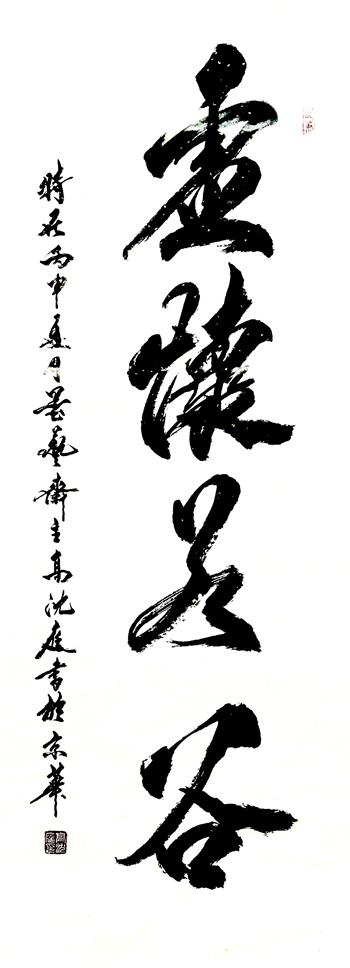 虚懷若谷
時在丙申夏月藝齋主高沈庭書於京華